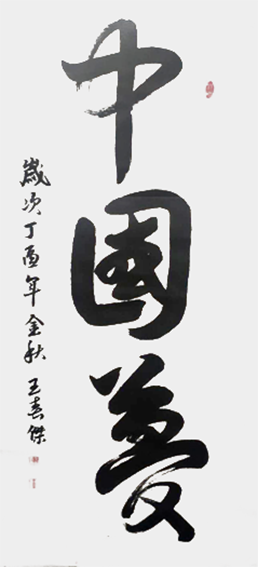 中國夢
歲次丁酉年金秋 王春傑